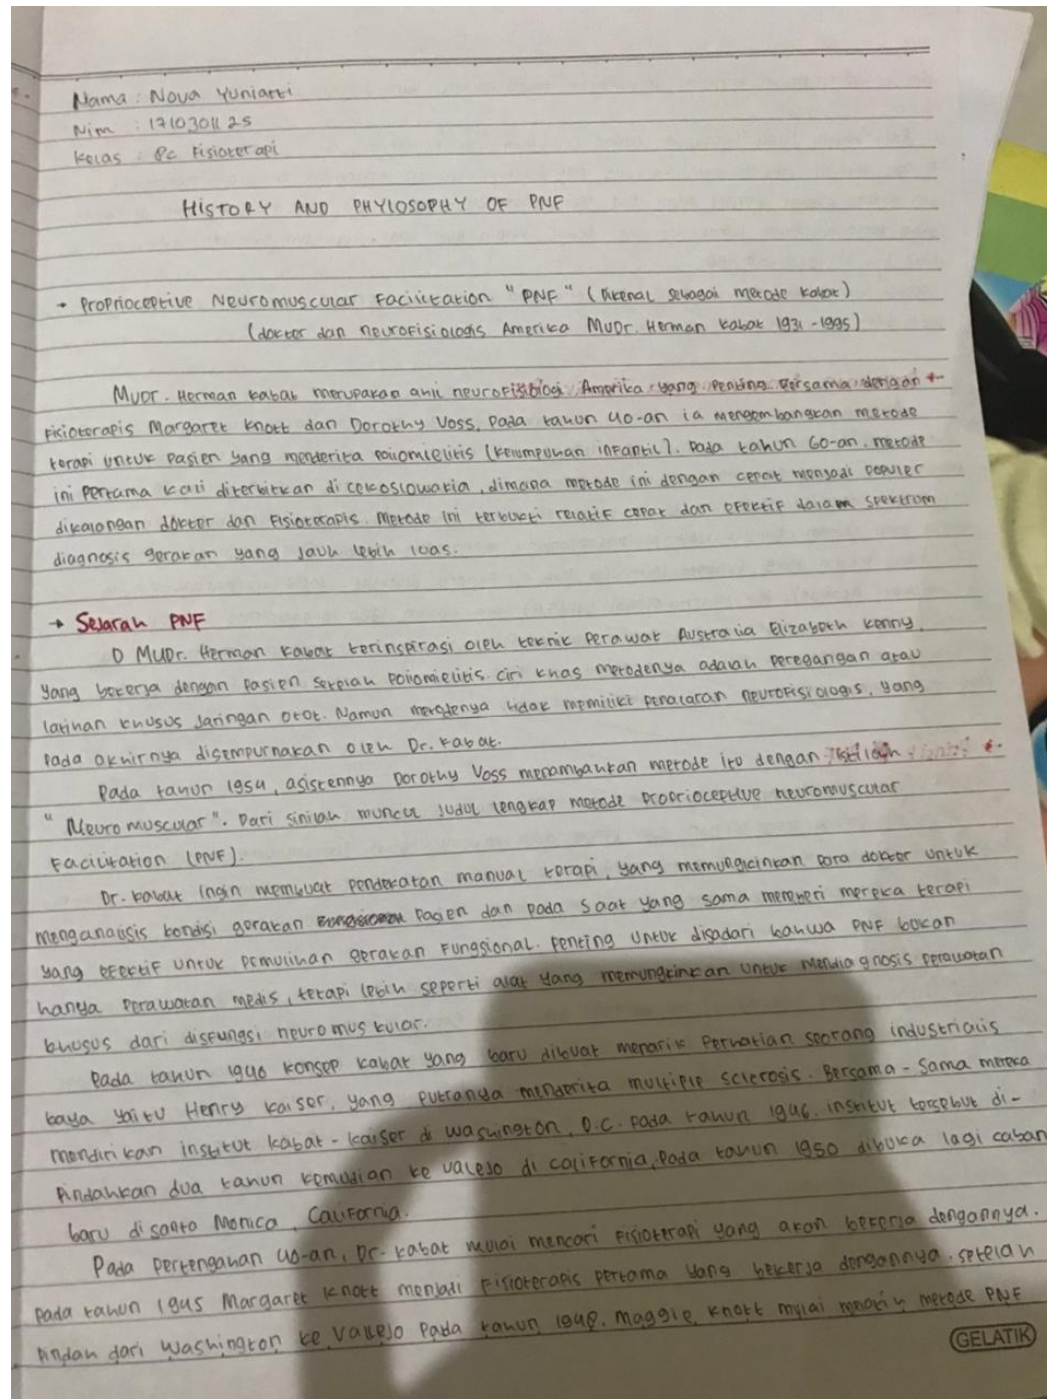 Nama : Nova Yuniarti
Nim : 1710301125
Kelas : 8c Fisioterapi
HISTORY AND PHYLOSOPHY OF PNF
→ Proprioceptive Neuromuscular Facilitation "PNF" (Dikenal sebagai metode kabat)
(doktor dan neurofisiologis Amerika MUDr. Herman Kabat 1931-1995)
MUDr. Herman Kabat merupakan ahli neurofisiologi Amerika yang penting. Bersama dengan
Fisioterapis Margaret Knott dan Dorothy Voss, Pada tahun 40-an ia mengembangkan metode
terapi untuk pasien yang menderita poliomielitis (kelumpuhan infantil). Pada tahun 60-an, metode
ini pertama kali diterbitkan di cekoslowakia, dimana metode ini dengan cepat menjadi populer
dikalangan dokter dan fisioterapis. Metode ini terbukti relatif cepat dan efektif dalam spektrum
diagnosis gerakan yang jauh lebih luas.
→ Sejarah PNF
MUDr. Herman Kabat terinspirasi oleh teknik perawat Australia Elizabeth Kenny,
yang bekerja dengan pasien setelah poliomielitis. ciri khas metodenya adalah peregangan atau
latihan khusus jaringan otot. Namun metodenya tidak memiliki penalaran neurofisiologis, yang
pada akhirnya disempurnakan oleh Dr. Kabat.
Pada tahun 1954, asistennya Dorothy Voss menambahkan metode itu dengan istilah
"Neuromuscular". Dari sinilah muncul judul lengkap metode proprioceptive neuromuscular
Facilitation (PNF).
Dr. Kabat ingin membuat pendekatan manual terapi, yang memungicinkan para dokter untuk
menganalisis kondisi gerakan pasien dan pada saat yang sama memberi mereka terapi
yang efektif untuk pemulihan gerakan fungsional. Penting untuk disadari bahwa PNF bukan
hanya perawatan medis, tetapi lebih seperti alat yang memungkinkan untuk mendiagnosis perawatan
khusus dari disfungsi neuromuskular.
Pada tahun 1940 konsep kabat yang baru dibuat menarik perhatian seorang industrialis
kaya yaitu Henry Kaiser, yang putranya menderita multiple sclerosis. Bersama-sama mereka
mendirikan institut kabat-kaiser di Washington, D.C. pada tahun 1946. institut tersebut di-
Pindahkan dua tahun kemudian ke valejo di california, Pada tahun 1950 dibuka lagi caban
baru di santa Monica, California.
Pada pertengahan 40-an, Dr. Kabat mulai mencari fisioterapi yang akan bekerja dengannya.
Pada tahun 1945 Margaret Knott menjadi fisioterapis pertama yang bekerja dengannya. setelah
Pindah dari Washington ke Vallejo pada tahun 1948, Maggie Knott mulai metode PNF
GELATIK